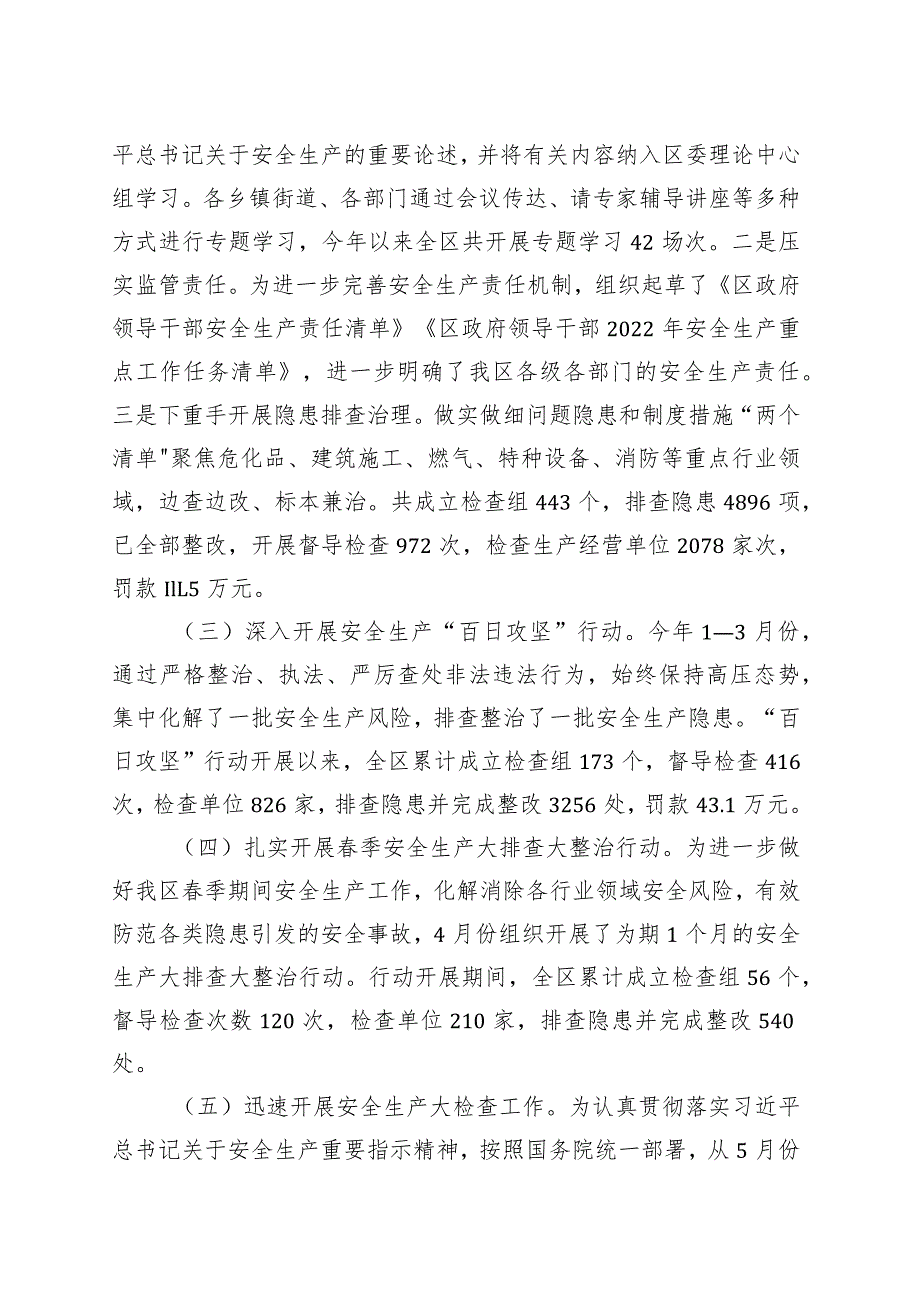 平总书记关于安全生产的重要论述，并将有关内容纳入区委理论中心
组学习。各乡镇街道、各部门通过会议传达、请专家辅导讲座等多种
方式进行专题学习，今年以来全区共开展专题学习 42 场次。二是压
实监管责任。为进一步完善安全生产责任机制，组织起草了《区政府
领导干部安全生产责任清单》《区政府领导干部 2022 年安全生产重
点工作任务清单》，进一步明确了我区各级各部门的安全生产责任。
三是下重手开展隐患排查治理。做实做细问题隐患和制度措施“两个
清单"聚焦危化品、建筑施工、燃气、特种设备、消防等重点行业领
域，边查边改、标本兼治。共成立检查组 443 个，排查隐患 4896 项，
已全部整改，开展督导检查 972 次，检查生产经营单位 2078 家次，
罚款 IlL5 万元。
（三）深入开展安全生产“百日攻坚”行动。今年 1—3 月份，
通过严格整治、执法、严厉查处非法违法行为，始终保持高压态势，
集中化解了一批安全生产风险，排查整治了一批安全生产隐患。“百
日攻坚”行动开展以来，全区累计成立检查组 173 个，督导检查 416
次，检查单位 826 家，排查隐患并完成整改 3256 处，罚款 43.1 万元。
（四）扎实开展春季安全生产大排查大整治行动。为进一步做
好我区春季期间安全生产工作，化解消除各行业领域安全风险，有效
防范各类隐患引发的安全事故，4 月份组织开展了为期 1 个月的安全
生产大排查大整治行动。行动开展期间，全区累计成立检查组 56 个，
督导检查次数 120 次，检查单位 210 家，排查隐患并完成整改 540
处。
（五）迅速开展安全生产大检查工作。为认真贯彻落实习近平
总书记关于安全生产重要指示精神，按照国务院统一部署，从 5 月份